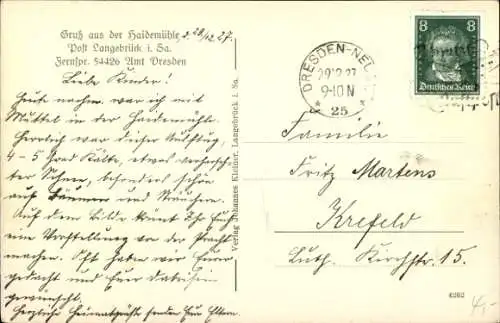 Gruß aus der Haidemühle
Post Langebrück i. Sa.
Fernspr. 54426 Amt Dresden
d. 28/12. 27.
Liebe Kinder!
Heute nachm. war ich mit
Muttel in der Haidemühle.
Herrlich war dieser Ausflug,
4-5 Grad Kälte, etwas verharschter
Schnee, besonders schön
auf Bäumen und Sträuchern.
Auf dem Bilde könnt Ihr Euch
eine Vorstellung von der Pracht
machen. Oft haben wir Eurer
gedacht und Euer Dabeisein
gewünscht.
Herzliche Heimatgrüße senden Eure Eltern.
Verlag Johannes Kleiner, Langebrück i. Sa.
DRESDEN-NEU
29.12.27
9-10 N
* 25 *
8 8
Deutsches Reich
Familie
Fritz Martens
Krefeld
Luth. Kirchstr. 15.
4,-